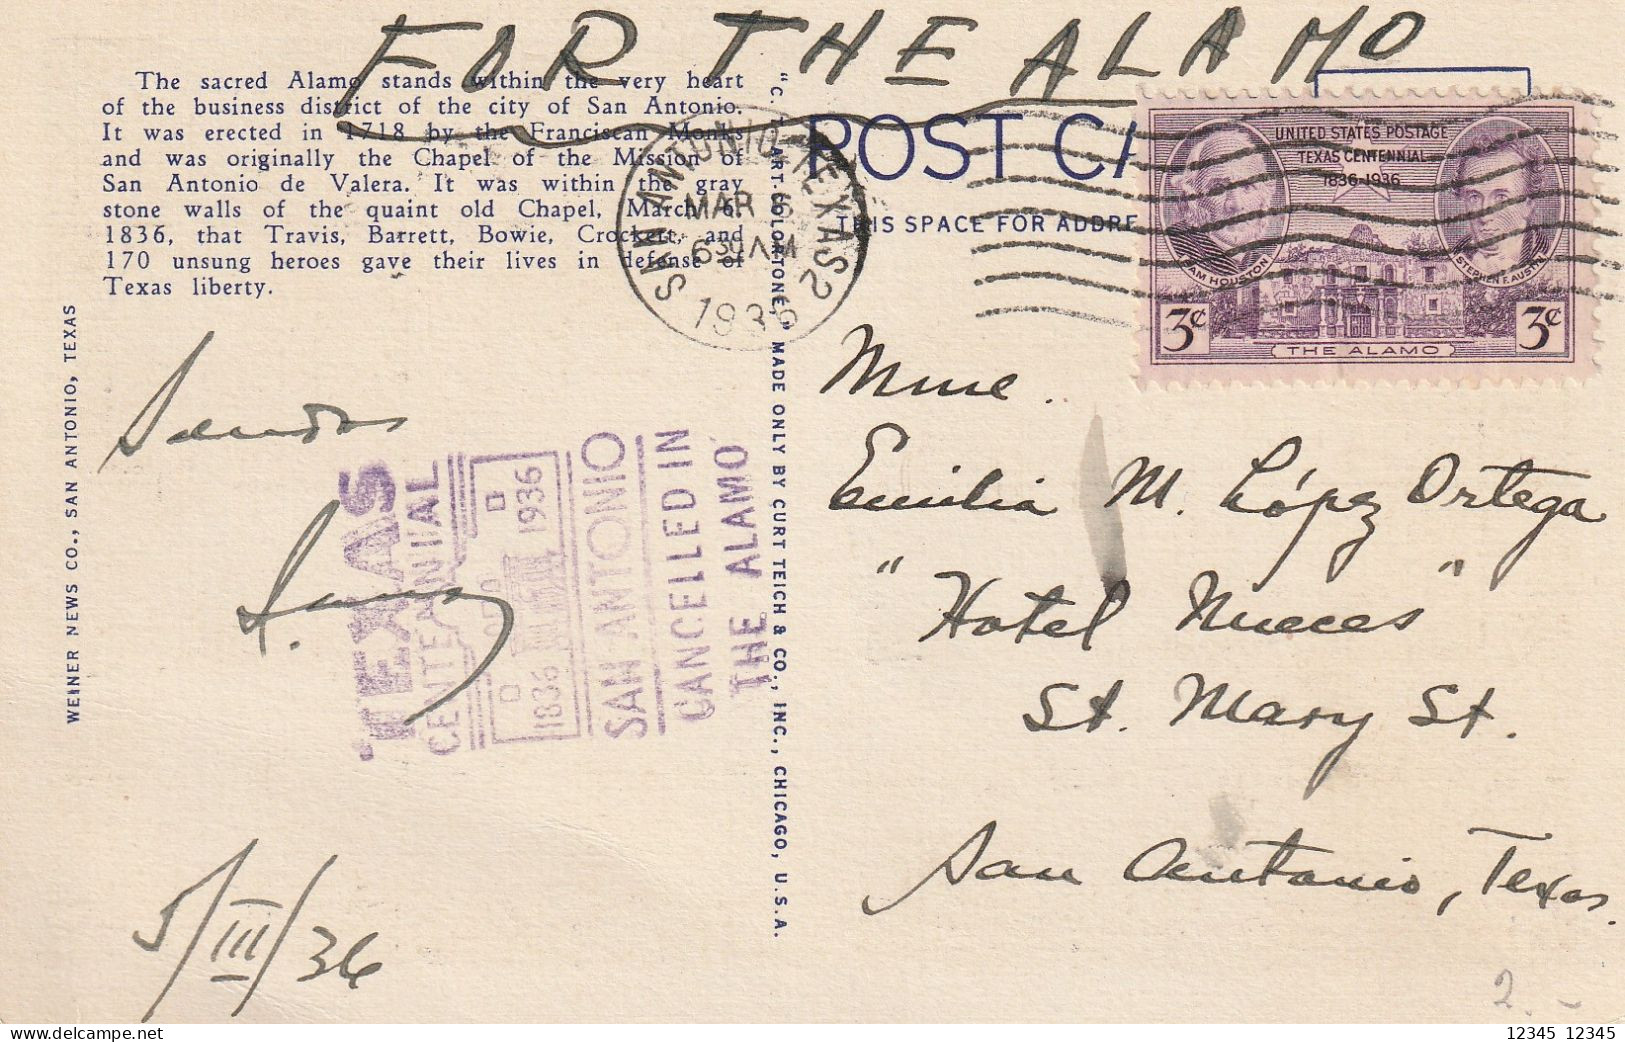 FOR THE ALAMO
The sacred Alamo stands within the very heart
of the business district of the city of San Antonio.
It was erected in 1718 by the Franciscan Monks
and was originally the Chapel of the Mission of
San Antonio de Valera. It was within the gray
stone walls of the quaint old Chapel, March 6,
1836, that Travis, Barrett, Bowie, Crockett, and
170 unsung heroes gave their lives in defense of
Texas liberty.
WEINER NEWS CO., SAN ANTONIO, TEXAS
"C. T. ART-COLORTONE" MADE ONLY BY CURT TEICH & CO., INC., CHICAGO, U.S.A.
SAN ANTONIO, TEXAS 2
MAR 6
6 30 AM
1936
POST CA
THIS SPACE FOR ADDRE
UNITED STATES POSTAGE
TEXAS CENTENNIAL
1836-1936
SAM HOUSTON
STEPHEN F. AUSTIN
3c
3c
THE ALAMO
TEXAS
CENTENNIAL
1836 1936
SAN ANTONIO
CANCELLED IN
THE ALAMO
5/III/36
Mme.
Emilia M. López Ortega
"Hotel Nueces"
St. Mary St.
San Antonio, Texas.
2.-
12345 12345